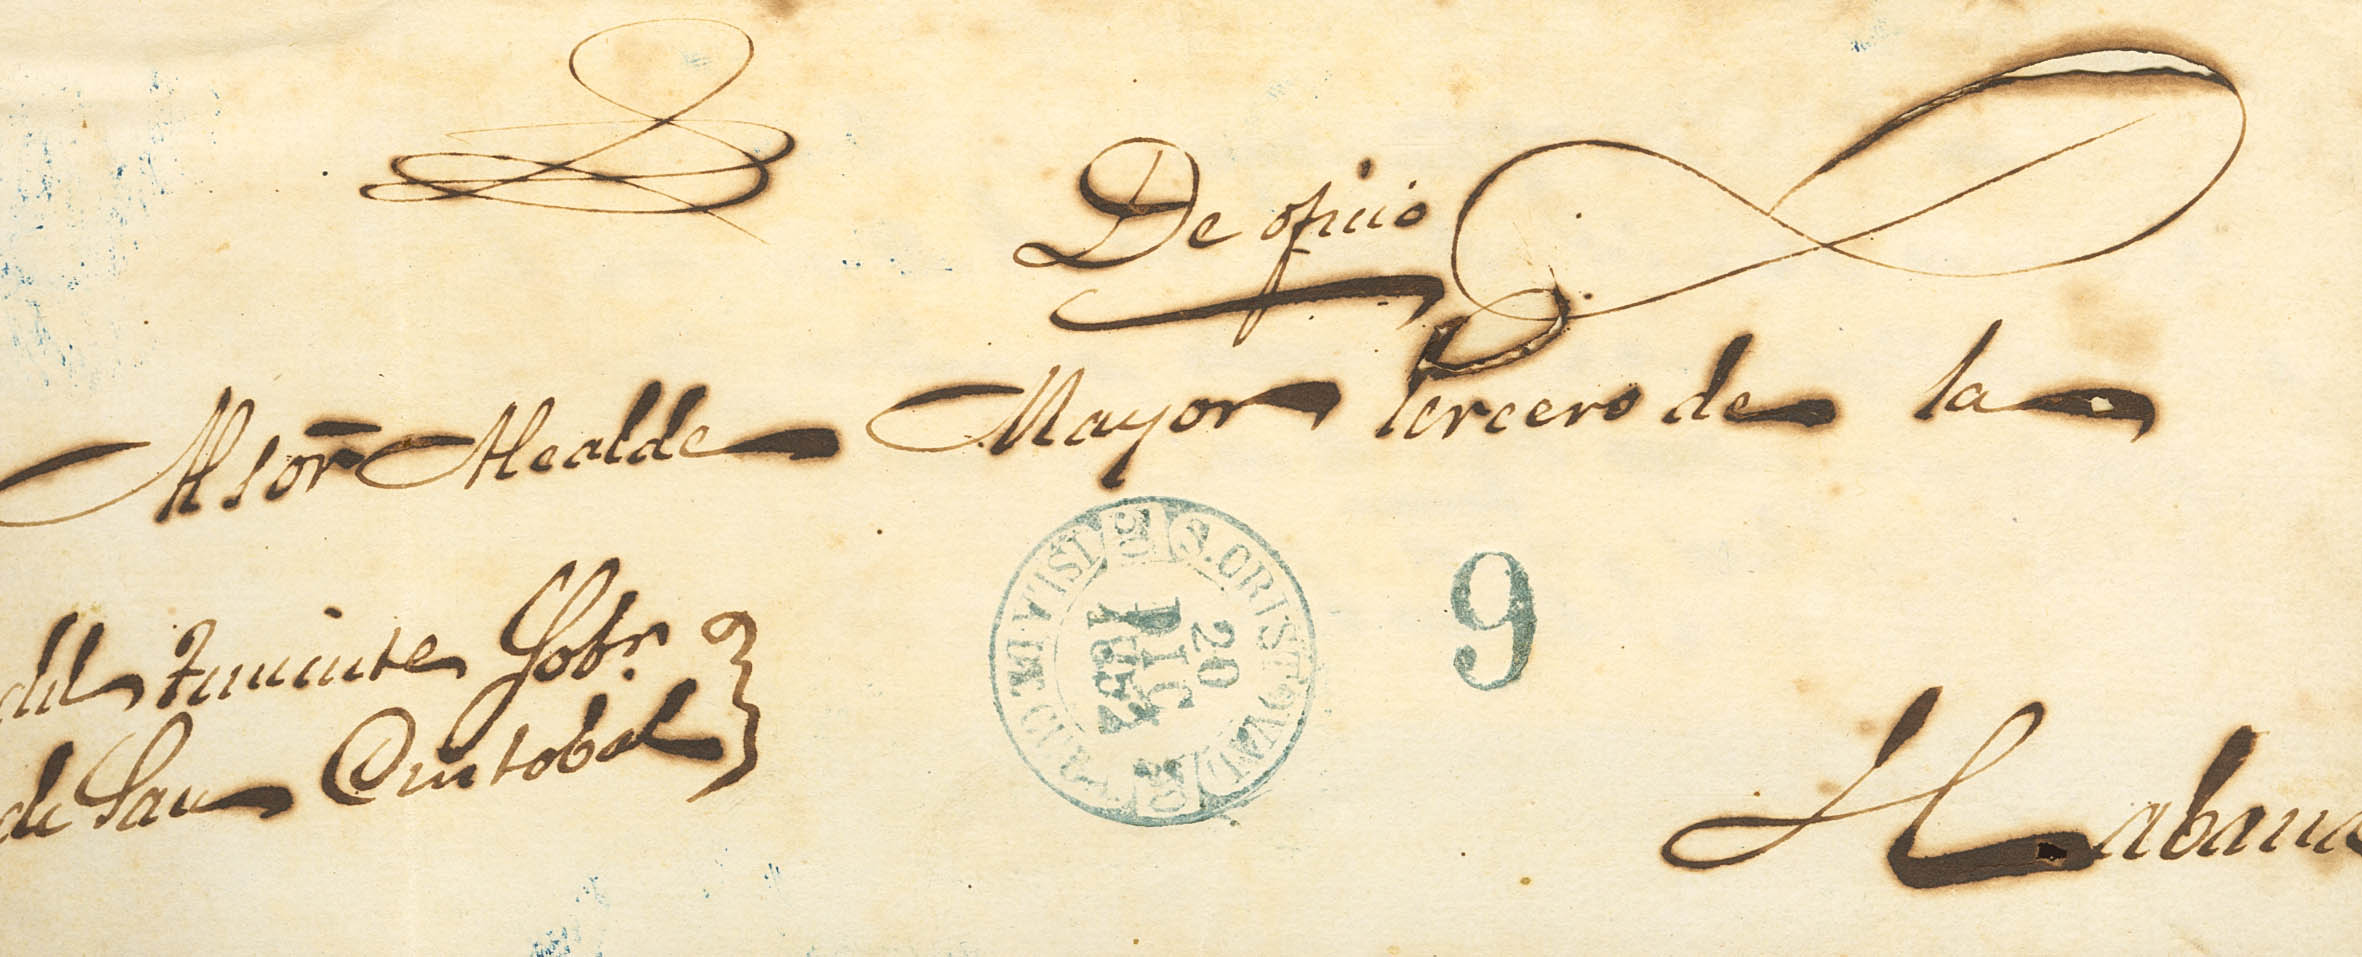 De oficio
Al Sor Alcalde Mayor Tercero de la
del Teniente Gobr.
de San Cristobal
S. CRISTOVAL
20
DIC
1852
ISLA DE CUBA
9
Habana